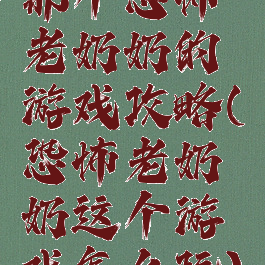 那个恐怖
老奶奶的
游戏攻略(
恐怖老奶
奶这个游
戏怎么玩)